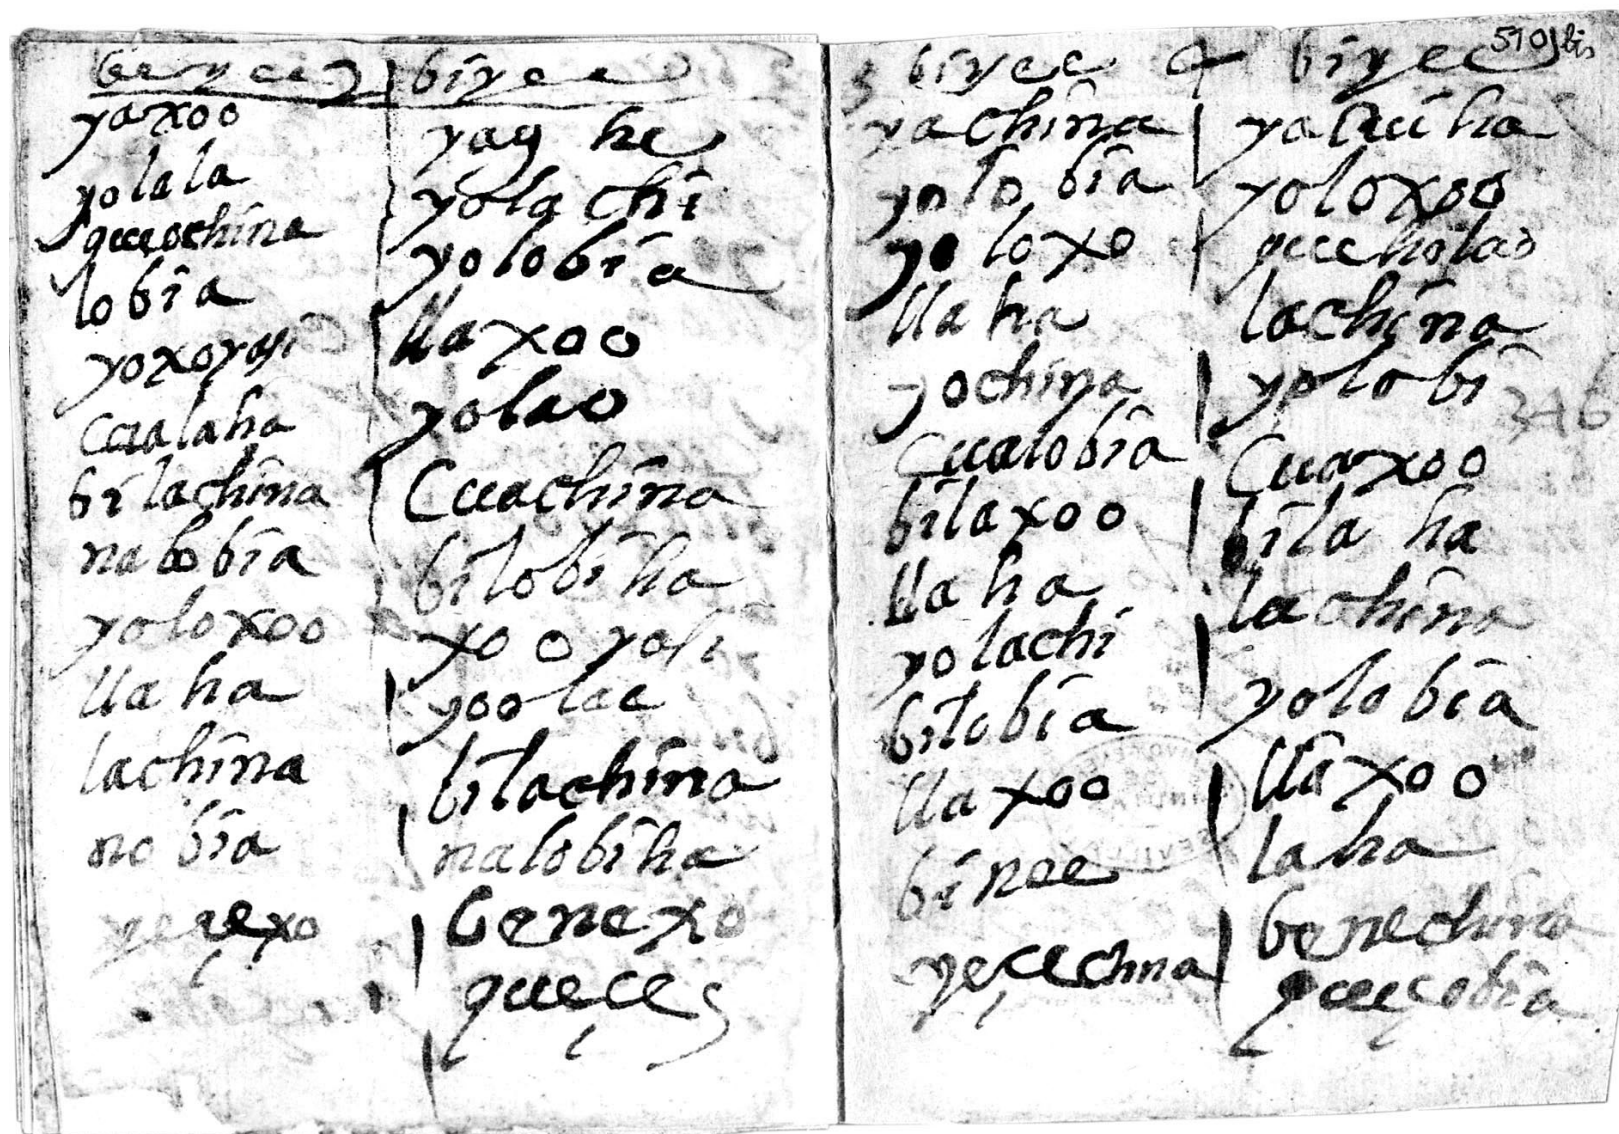 beyee biyee
yaxoo
yolala
queochina
lobia
yoxoyosi
Cualaha
bilachina
nalobia
yoloxoo
llaha
lachina
nobia
yeçexo
yag he
yola chi
yolobia
llaxoo
yolao
Cuachina
bilobiha
xoo yosi
yoolae
bilachina
nalobiha
benexo
queçe
biyee biyee
51 bis
yachina
yolo bia
yo loxo
llaha
yochina
Cualobia
bilaxoo
llaha
yolachi
bilobia
llaxoo
binee
yeçechina
yalaiiha
yoloxoo
queeholao
lachina
yolobi
246
Cuaxoo
bila ha
lachina
yolobia
llaxoo
laha
benechina
queeçobia